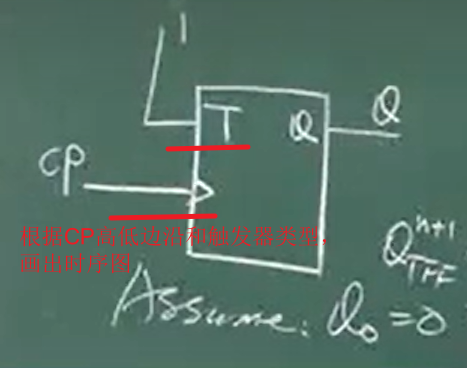 1
T Q Q
CP
根据CP高低边沿和触发器类型，
画出时序图
Q^{n+1}_{TFF}
Assume: Q₀=0